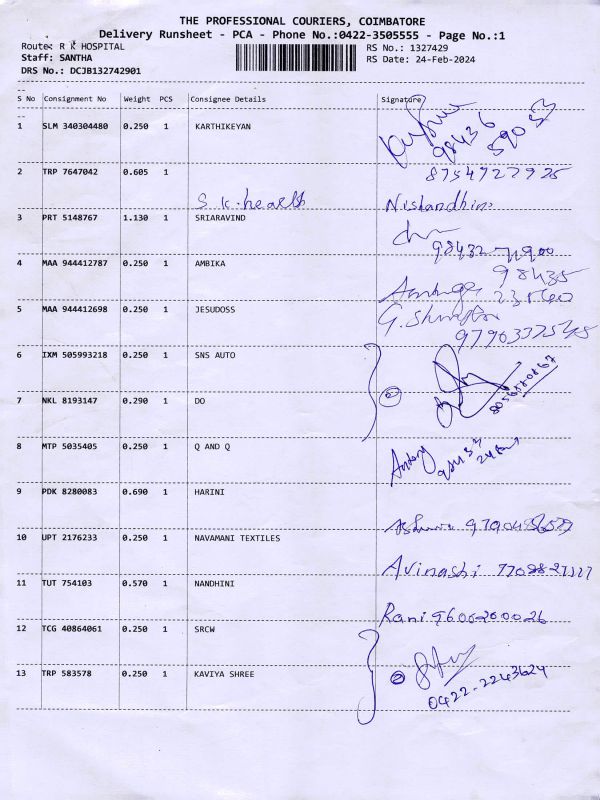 THE PROFESSIONAL COURIERS, COIMBATORE
Delivery Runsheet - PCA - Phone No.:0422-3505555 - Page No.:1
Route: R K HOSPITAL
RS No.: 1327429
Staff: SANTHA
RS Date: 24-Feb-2024
DRS No.: DCJB132742901
S No Consignment No Weight PCS Consignee Details Signature
1 SLM 340304480 0.250 1 KARTHIKEYAN
98436 59053
2 TRP 7647042 0.605 1
8754727925
S K. health Nishandhini
3 PRT 5148767 1.130 1 SRIARAVIND
98432 71900
4 MAA 944412787 0.250 1 AMBIKA
98435
5 MAA 944412698 0.250 1 JESUDOSS
6 IXM 505993218 0.250 1 SNS AUTO
7 NKL 8193147 0.290 1 DO
2
8 MTP 5035405 0.250 1 Q AND Q
9 PDK 8280083 0.690 1 HARINI
10 UPT 2176233 0.250 1 NAVAMANI TEXTILES
Avinashi
11 TUT 754103 0.570 1 NANDHINI
Rani 9600200026
12 TCG 40864061 0.250 1 SRCW
13 TRP 583578 0.250 1 KAVIYA SHREE
2
0422-2243624